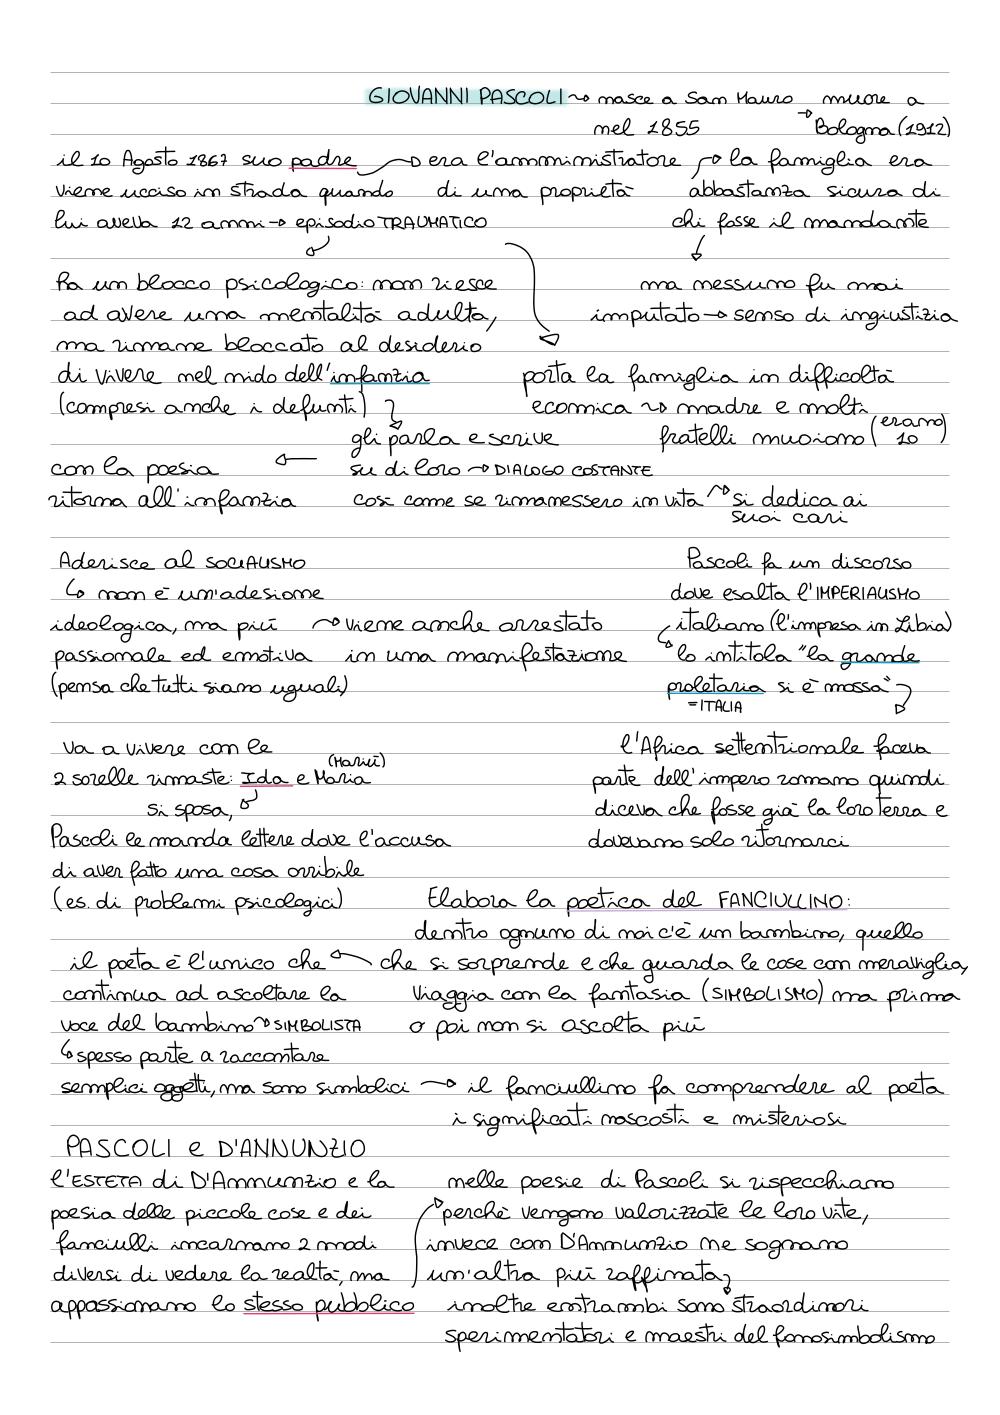 GIOVANNI PASCOLI ~> nasce a San Mauro → muore a
nel 1855 Bologna (1912)
il 10 Agosto 1867 suo padre → era l'amministratore → la famiglia era
viene ucciso in strada quando di una proprietà abbastanza sicura di
lui aveva 12 anni → episodio TRAUMATICO chi fosse il mandante
ha un blocco psicologico: non riesce ma nessuno fu mai
ad avere una mentalità adulta, imputato → senso di ingiustizia
ma rimane bloccato al desiderio
di vivere nel nido dell'infanzia porta la famiglia in difficoltà
(compresi anche i defunti) ecomica ~> madre e molti
gli parla e scrive fratelli muoiono (erano 10)
con la poesia ← su di loro → DIALOGO COSTANTE
ritorna all'infanzia così come se rimanessero in vita ~> si dedica ai
suoi cari
Aderisce al SOCIALISMO Pascoli fa un discorso
↳ non è un'adesione dove esalta l'IMPERIALISMO
ideologica, ma più ~> viene anche arrestato italiano (l'impresa in Libia)
passionale ed emotiva in una manifestazione ↳ lo intitola "la grande
(pensa che tutti siano uguali) proletaria si è mossa"
=ITALIA
va a vivere con le l'Africa settentrionale faceva
2 sorelle rimaste: Ida e Maria (Mariù) parte dell'impero romano quindi
si sposa, diceva che fosse già la loro terra e
Pascoli le manda lettere dove l'accusa dovevano solo ritornarci
di aver fatto una cosa orribile
(es. di problemi psicologici) Elabora la poetica del FANCIULLINO:
dentro ognuno di noi c'è un bambino, quello
il poeta è l'unico che ← che si sorprende e che guarda le cose con meraviglia,
continua ad ascoltare la viaggia con la fantasia (SIMBOLISMO) ma prima
voce del bambino ~> SIMBOLISTA o poi non si ascolta più
↳ spesso parte a raccontare
semplici oggetti, ma sono simbolici → il fanciullino fa comprendere al poeta
i significati nascosti e misteriosi
PASCOLI e D'ANNUNZIO
l'ESTETA di D'Annunzio e la nelle poesie di Pascoli si rispecchiano
poesia delle piccole cose e dei perchè vengono valorizzate le loro vite,
fanciulli incarnano 2 modi invece con D'Annunzio ne sognano
diversi di vedere la realtà, ma un'altra più raffinata
appassionano lo stesso pubblico inoltre entrambi sono straordinori
sperimentatori e maestri del fonosimbolismo